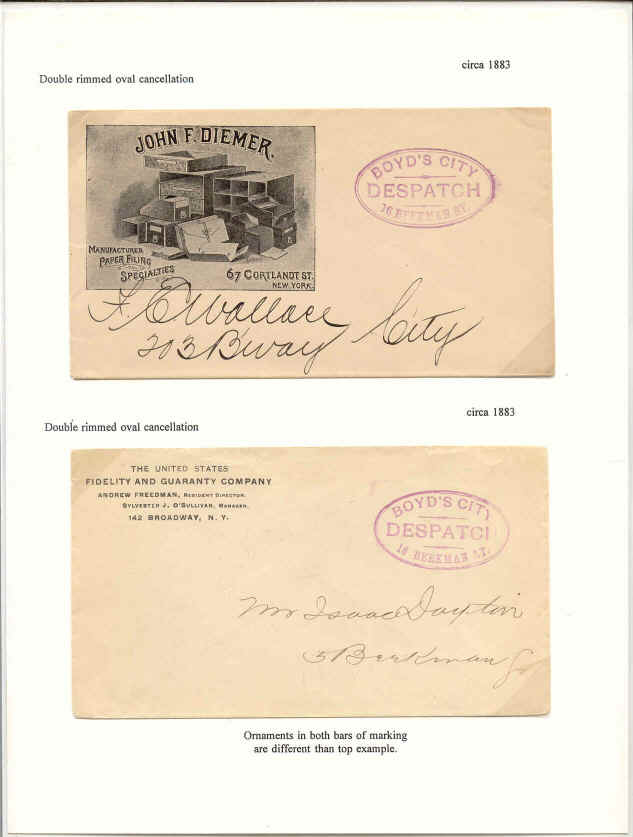 circa 1883
Double rimmed oval cancellation
JOHN F. DIEMER.
MANUFACTURER
PAPER FILING
SPECIALTIES
67 CORTLANDT ST.
NEW YORK.
BOYD'S CITY
DESPATCH
16 BEEKMAN ST.
F. E Wallace
203 B'way City
circa 1883
Double rimmed oval cancellation
THE UNITED STATES
FIDELITY AND GUARANTY COMPANY
ANDREW FREEDMAN, RESIDENT DIRECTOR.
SYLVESTER J. O'SULLIVAN, MANAGER.
142 BROADWAY, N. Y.
BOYD'S CITY
DESPATC
16 BEEKMAN ST.
Mr Isaac Dayton
5 Beekman St
Ornaments in both bars of marking
are different than top example.